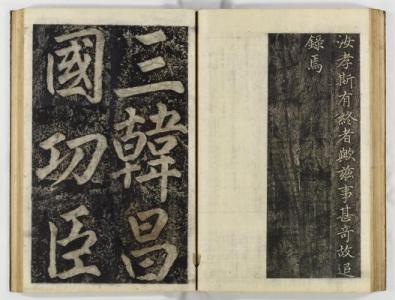 汝孝斯有終者歟玆事甚奇故追
錄焉
三韓昌
國功臣